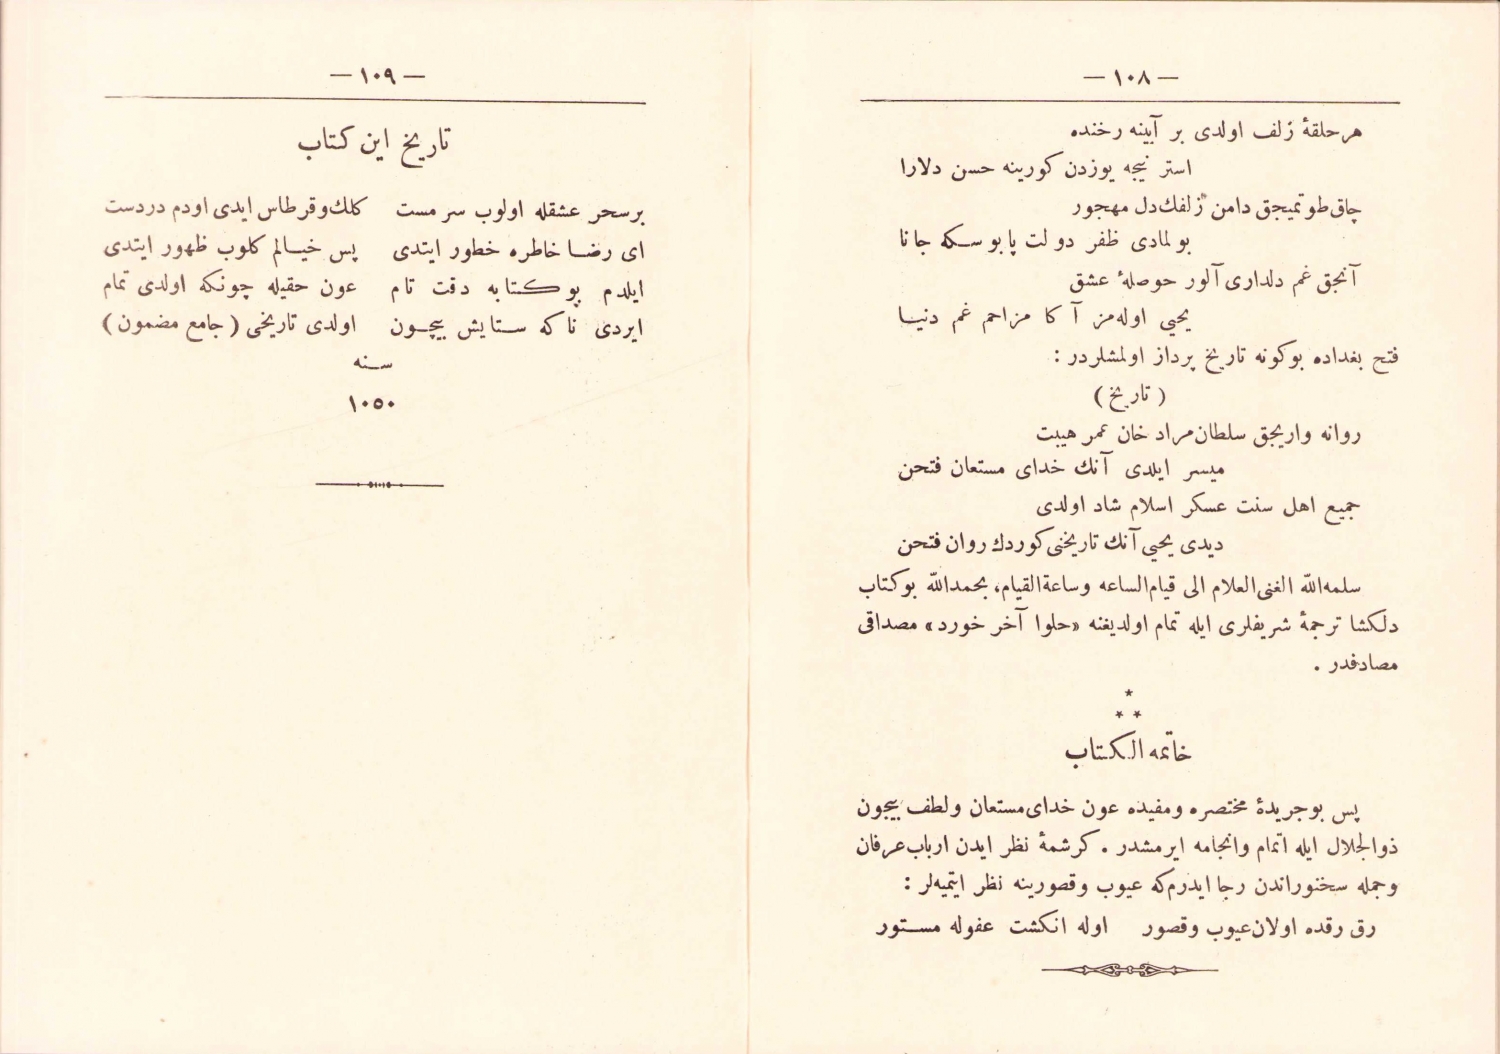 — ١٠٨ —
هر حلقۀ زلف اولدى بر آيينه رخنده
استر نيجه يوزدن كورينه حسن دلارا
چاق طوتميجق دامن زلفك دل مهجور
بولمادى ظفر دولت پابوسكه جانا
آنجق غم دلدارى آلور حوصلۀ عشق
يحيى اوله‌مز آكا مزاحم غم دنيا
فتح بغداده بوكونه تاريخ پرداز اولمشلردر :
( تاريخ )
روانه واريجق سلطان مراد خان عمر هيبت
ميسر ايلدى آنك خداى مستعان فتحن
جميع اهل سنت عسكر اسلام شاد اولدى
ديدى يحيى آنك تاريخنى كوردك روان فتحن
سلمه‌الله الغنى‌العلام الى قيام‌الساعه وساعة‌القيام، بحمدالله بوكتاب
دلكشا ترجمۀ شريفلرى ايله تمام اولديغنه «حلوا آخر خورد» مصداقى
مصادفدر .
*
* *
خاتمه الكتاب
پس بوجريدۀ مختصره ومفيده عون خداى مستعان ولطف بيچون
ذوالجلال ايله اتمام وانجامه ايرمشدر . كرشمۀ نظر ايدن ارباب عرفان
وجمله سخنوراندن رجا ايدرم‌كه عيوب وقصورينه نظر ايتميه‌لر :
رق رقده اولان عيوب وقصور اوله انكشت عفوله مستور
— ١٠٩ —
تاريخ اين كتاب
برسحر عشقله اولوب سرمست كلك وقرطاس ايدى اودم دردست
اى رضا خاطره خطور ايتدى پس خيالم كلوب ظهور ايتدى
ايلدم بوكتابه دقت تام عون حقيله چونكه اولدى تمام
ايردى ناكه ستايش بيچون اولدى تاريخى ( جامع مضمون )
سنه
١٠٥٠